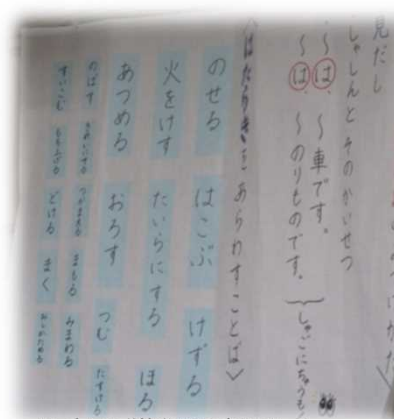 見だし
しゃしんとそのかいせつ
～は、～車です。
～は、～のりものです。
しゅごにちゅうもく
〈はたらきをあらわすことば〉
のせる はこぶ けずる
火をけす たいらにする ほる
あつめる おろす つむ たすける
のばす つかまえる まもる みまわる
すいこむ どける まく